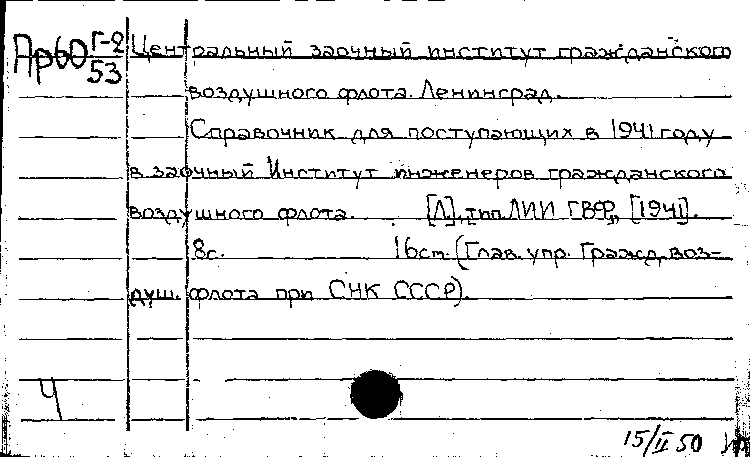 Ар60 Г-2
53
Центральный заочный институт гражданского
воздушного флота. Ленинград.
Справочник для поступающих в 1941 году
в заочный Институт инженеров гражданского
воздушного флота. [Л], тип. ЛИИ ГВФ, [1941].
8с. 16см. (Глав. упр. Гражд. воз-
душ. флота при СНК СССР).
Ч
15/II 50